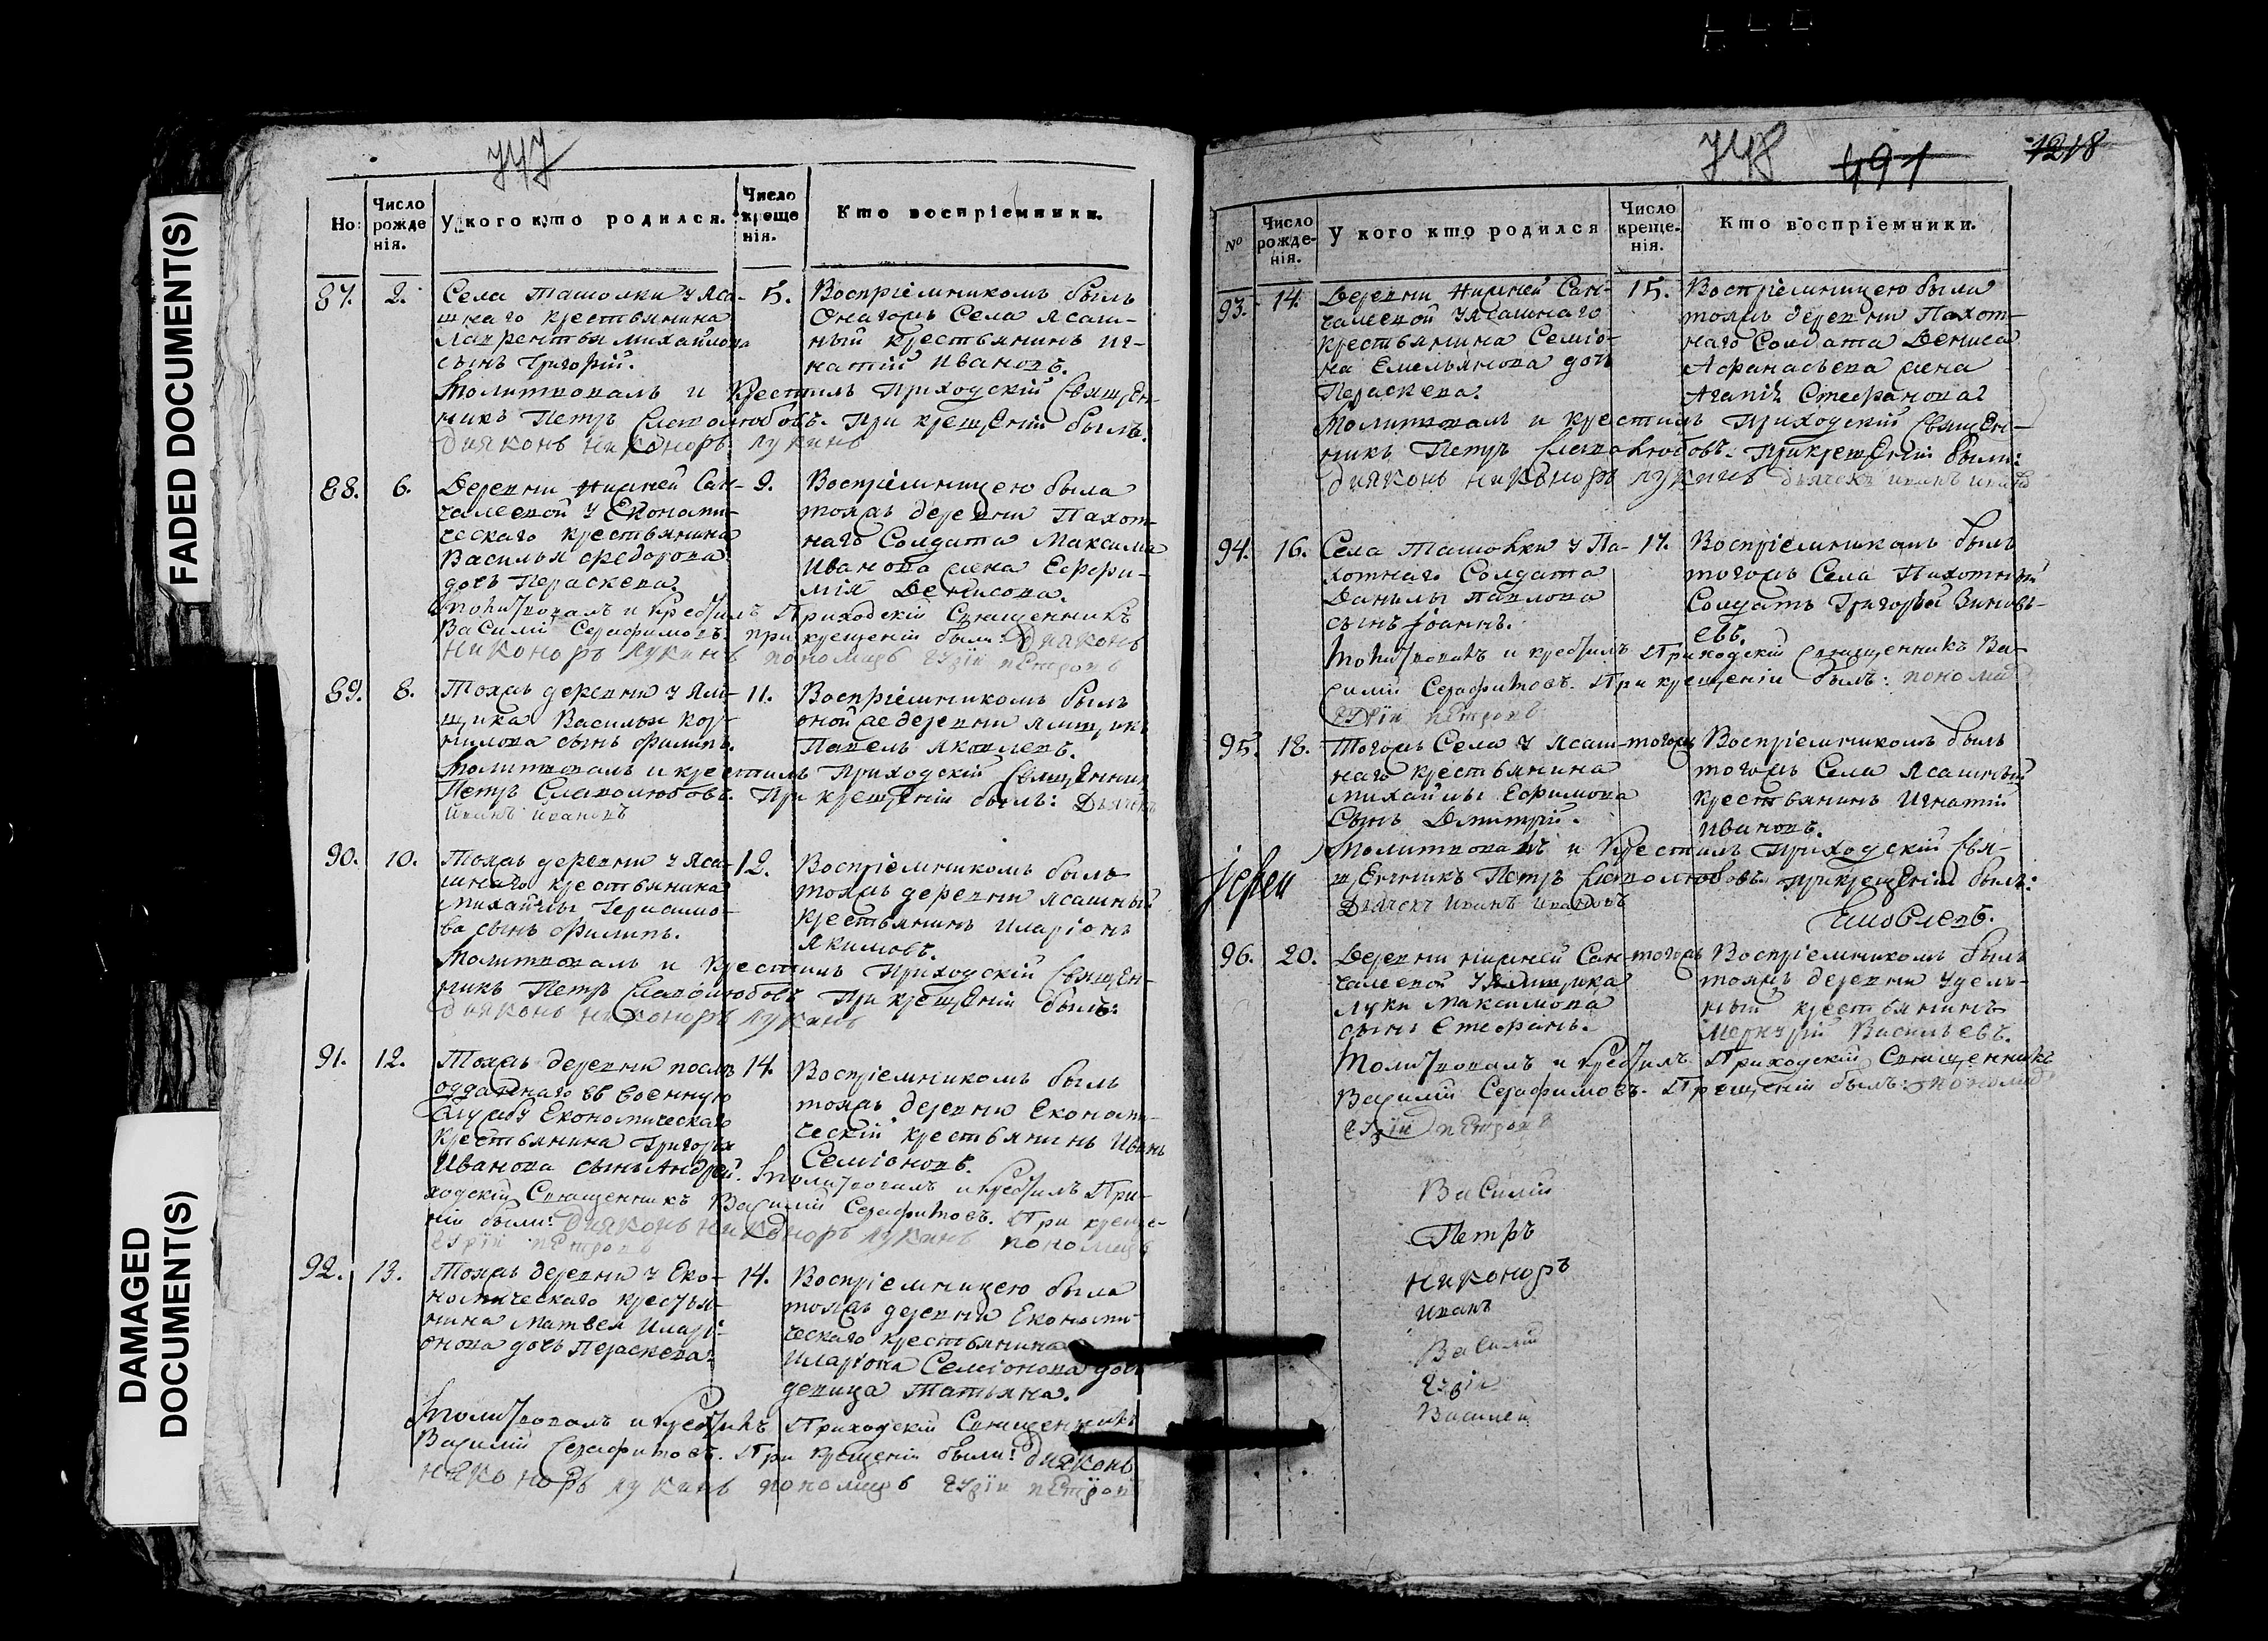 FADED DOCUMENT(S)
DAMAGED
DOCUMENT(S)
747
Но:
Число рожденія.
У кого кто родился.
Число крещенія.
Кто воспріемники.
87. 2.
Села Ташолки у Яса-
шнаго крестьянина
Лаврентья Михайлова
сынъ Григорій.
5.
Воспріемникомъ былъ
Онагожъ Села ясаш-
ный крестьянинъ Иг-
натій Ивановъ.
Молитвовалъ и крестилъ Приходскій Священ-
никъ Петръ Славолюбовъ. При крещеніи былъ:
диаконъ Никоноръ Лукинъ
88. 6.
Деревни Нижней Сан-
чалеевой у Економи-
ческаго крестьянина
Василья Федорова
дочь Пераскева.
9.
Воспріемницею была
тояжъ деревни Пахот-
наго Солдата Максима
Иванова жена Евфи-
мія Денисова.
Молитвовалъ и крестилъ Приходскій Священникъ
Василій Серафимовъ. при крещеніи были: Диаконъ
Никоноръ Лукинъ пономарь Гурій Петровъ
89. 8.
Тояжъ деревни у Ям-
щика Василья Кор-
нилова сынъ Филипъ.
11.
Воспріемникомъ былъ
оной же деревни ямщикъ
Павелъ Яковлевъ.
Молитвовалъ и крестилъ Приходскій Священник
Петръ Славолюбовъ. При крещеніи былъ: Дьячекъ
Иванъ Ивановъ
90. 10.
Тояжъ деревни у Яса-
шнаго крестьянина
Михайлы Герасимо-
ва сынъ Филипъ.
12.
Воспріемникомъ былъ
тояжъ деревни ясашный
крестьянинъ Иларіонъ
Якимовъ.
Молитвовалъ и крестилъ Приходскій Священ-
никъ Петръ Славолюбовъ При крещеніи былъ:
диаконъ Никоноръ Лукинъ
91. 12.
Тояжъ деревни послѣ
отданнаго въ военную
Службу Економическаго
крестьянина Григорья
Иванова сынъ Андрей.
14.
Воспріемникомъ былъ
тояжъ деревни Економи-
ческій крестьянинъ Иванъ
Семіоновъ.
Молитвовалъ и крестилъ При-
ходскій Священникъ Василій Серафимовъ. При креще-
ніи были: диаконъ Никоноръ Лукинъ пономарь
Гурій Петровъ
92. 13.
Тояжъ деревни у Еко-
номическаго крестья-
нина Матвея Иларі-
онова дочь Пераскева.
14.
Воспріемницею была
тояжъ деревни Економи-
ческаго крестьянина
Иларіона Семіонова дочь
девица Татьяна.
Молитвовалъ и крестилъ Приходскій Священникъ
Василій Серафимовъ. При крещеніи были: диаконъ
Никоноръ Лукинъ пономарь Гурій Петровъ
748 491 1218
№
Число рожденія.
У кого кто родился
Число крещенія.
Кто воспріемники.
93. 14.
Деревни Нижней Сан-
чалеевой у Ясашнаго
крестьянина Семіо-
на Емельянова дочь
Пераскева.
15.
Воспріемницею была
тояжъ деревни Пахот-
наго Солдата Дениса
Афанасьева жена
Агапія Стефанова
Молитвовалъ и крестилъ Приходскій Священ-
никъ Петръ Славолюбовъ. При крещеніи были:
диаконъ Никоноръ Лукинъ дьячекъ Иванъ Ивановъ
94. 16.
Села Ташовки у Па-
хотнаго Солдата
Данилы Павлова
сынъ Іоаннъ.
17.
Воспріемникомъ былъ
тогожъ Села Пахотный
Солдатъ Григорій Зиновь-
евъ.
Молитвовалъ и крестилъ Приходскій Священникъ Ва-
силій Серафимовъ. При крещеніи былъ: пономарь
Гурій Петровъ
95. 18.
Тогожъ Села у Ясаш-
наго крестьянина
Михайлы Ефимова
Сынъ Дмитрій.
тогожъ
Воспріемникомъ былъ
тогожъ Села Ясашный
крестьянинъ Игнатій
Ивановъ.
Молитвовалъ и крестилъ Приходскій Свя-
щенникъ Петръ Славолюбовъ При крещеніи былъ:
Дьячекъ Иванъ Ивановъ
Іерей
Яковлевъ.
96. 20.
Деревни Нижней Сан-
чалеевой у Ямщика
Луки Максимова
сынъ Стефанъ.
тогожъ
Воспріемникомъ былъ
тояжъ деревни Удель-
ный крестьянинъ
Меркурій Васильевъ.
Молитвовалъ и крестилъ Приходскій Священникъ
Василій Серафимовъ. При крещеніи былъ: пономарь
Гурій Петровъ
Василій
Петръ
Никоноръ
Иванъ
Василій
Гурій
Василей